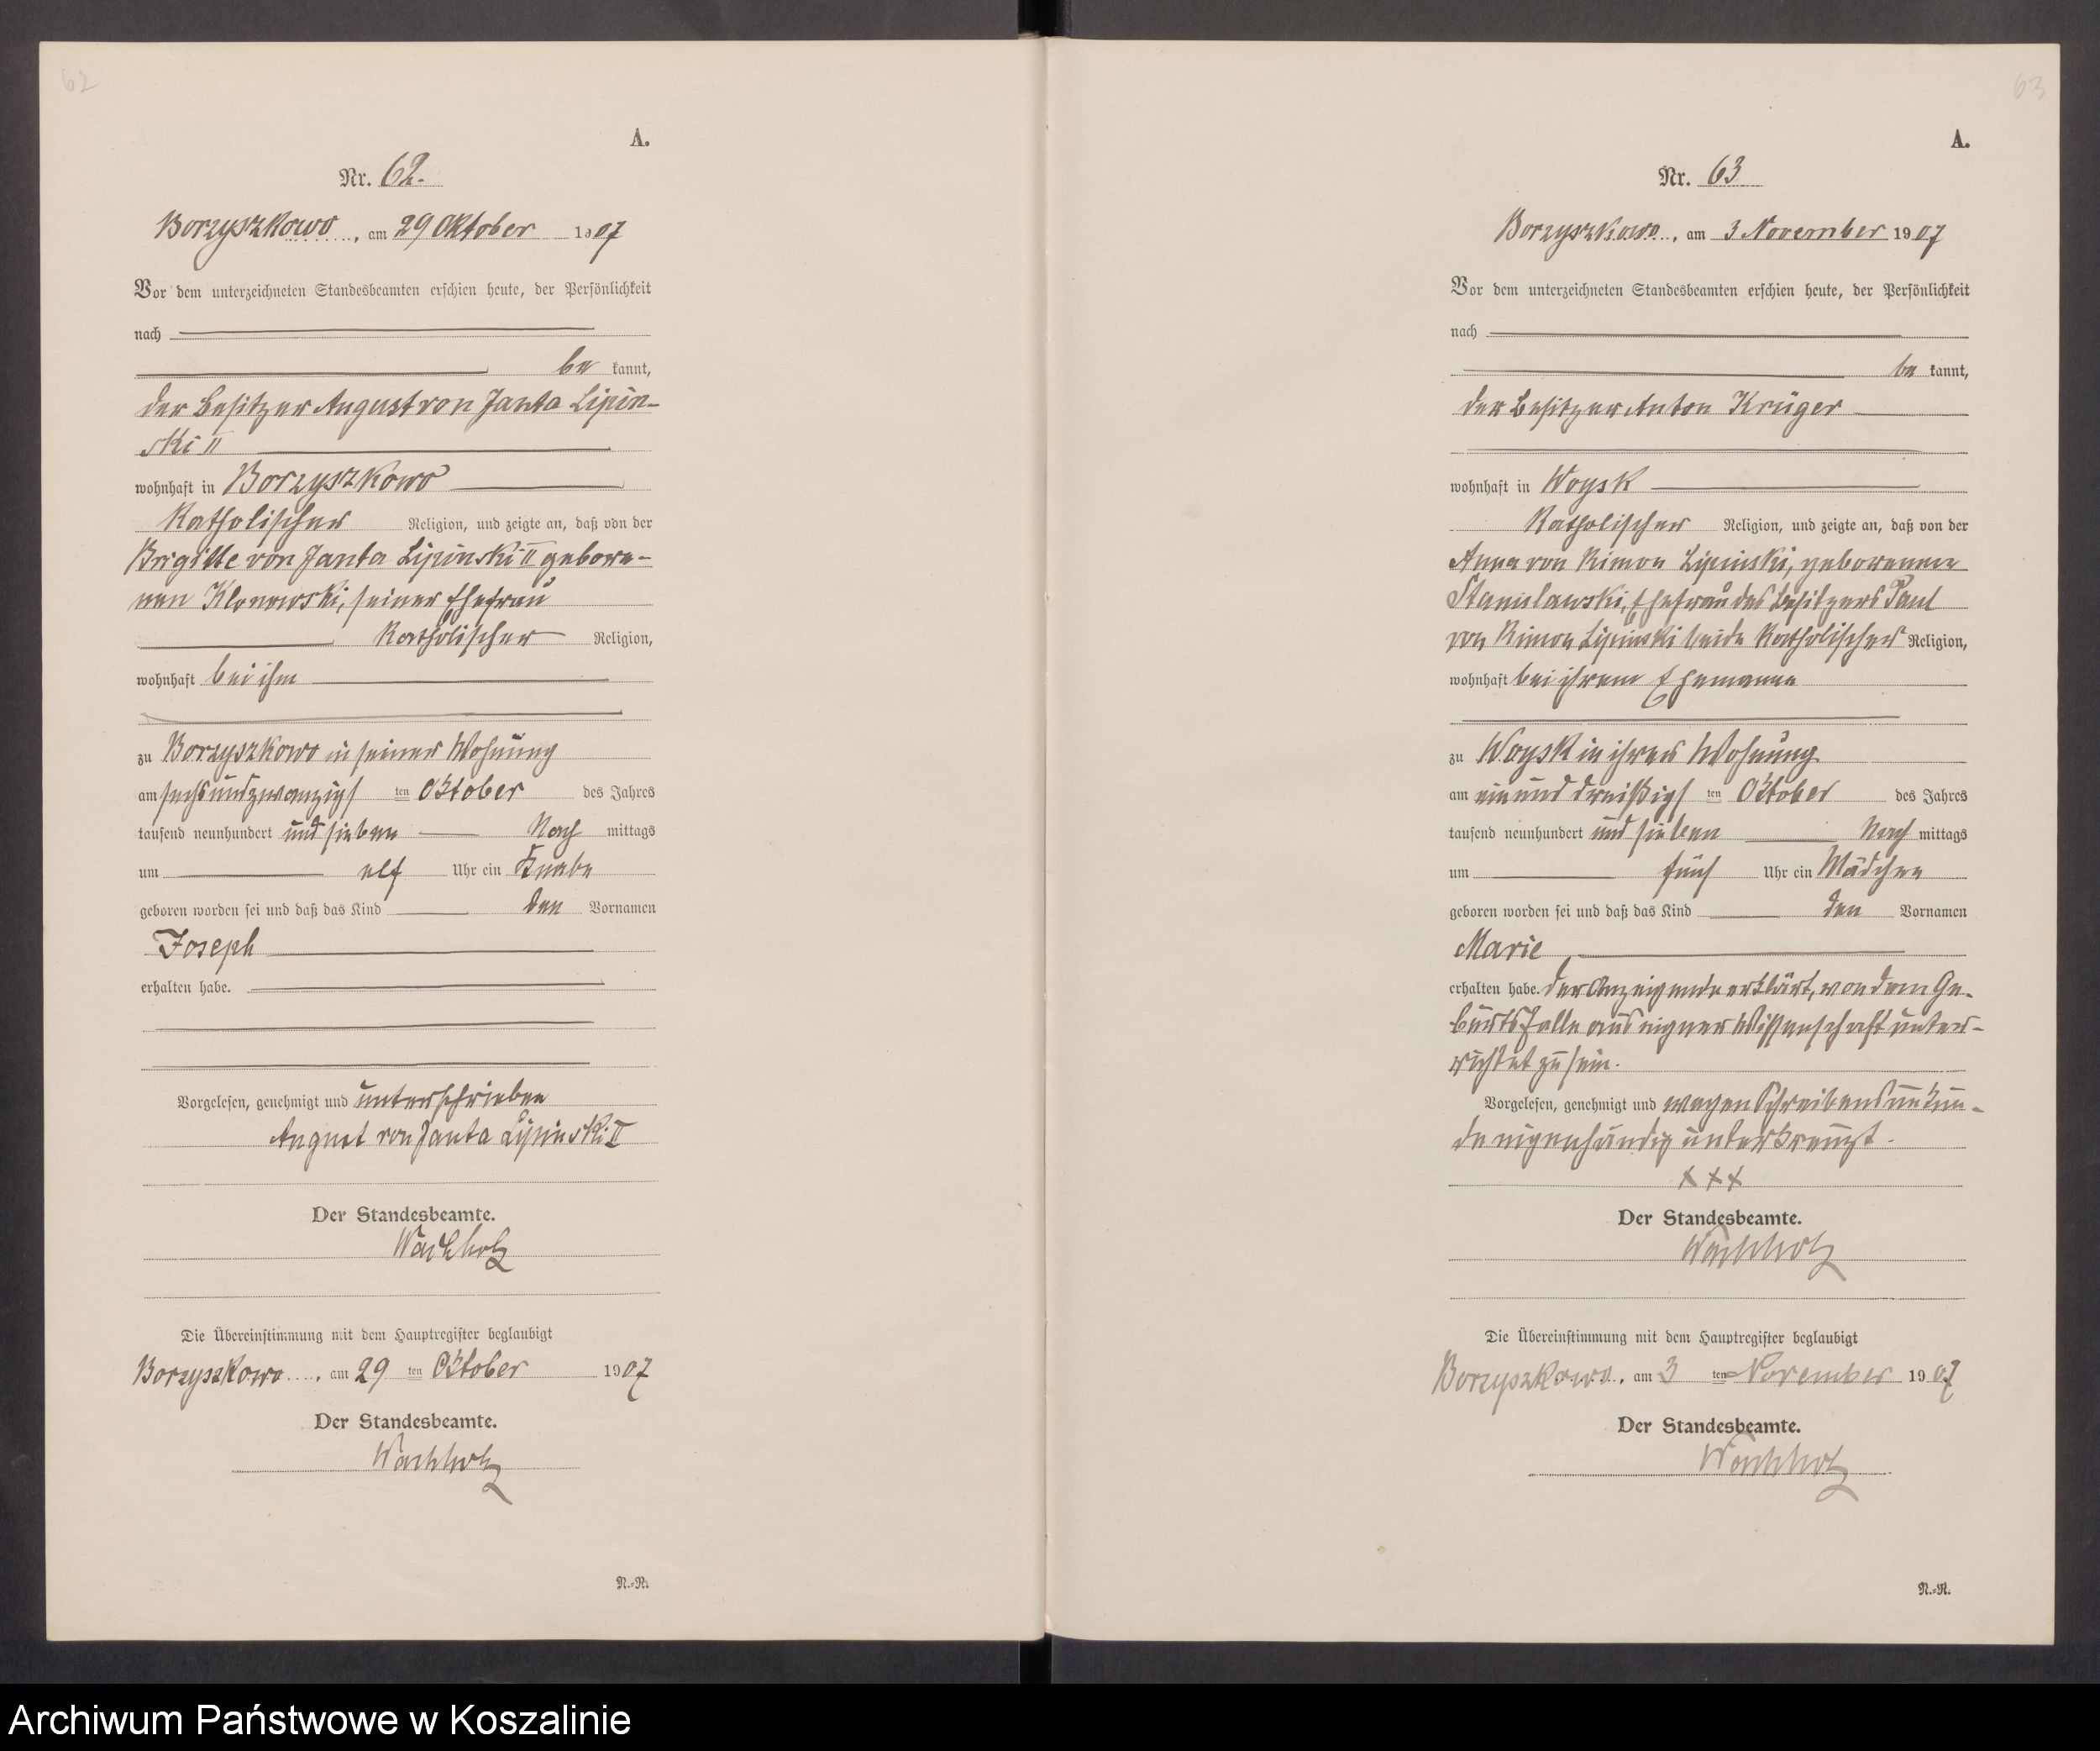 62
A.
Nr. 62.
Borzyszkowo, am 29 Oktober 1907
Vor dem unterzeichneten Standesbeamten erschien heute, der Persönlichkeit
nach
be kannt,
der Besitzer August von Janta Lipin-
ski II
wohnhaft in Borzyszkowo
katholischer Religion, und zeigte an, daß von der
Brigitte von Janta Lipinski II gebore-
nen Klonowski, seiner Ehefrau
katholischer Religion,
wohnhaft bei ihm
zu Borzyszkowo in seiner Wohnung
am sechsundzwanzigs ten Oktober des Jahres
tausend neunhundert und sieben Nach mittags
um elf Uhr ein Knabe
geboren worden sei und daß das Kind den Vornamen
Joseph
erhalten habe.
Vorgelesen, genehmigt und unterschrieben
August von Janta Lipinski II
Der Standesbeamte.
Wachholz
Die Übereinstimmung mit dem Hauptregister beglaubigt
Borzyszkowo, am 29 ten Oktober 1907
Der Standesbeamte.
Wachholz
N.-R.
63
A.
Nr. 63
Borzyszkowo, am 3 November 1907
Vor dem unterzeichneten Standesbeamten erschien heute, der Persönlichkeit
nach
be kannt,
der Besitzer Anton Krüger
wohnhaft in Woysk
katholischer Religion, und zeigte an, daß von der
Anna von Kimon Lipinski, geborenen
Stanislawski, Ehefrau des Besitzers Paul
von Kimon Lipinski beide katholischer Religion,
wohnhaft bei ihrem Ehemanne
zu Woysk in ihrer Wohnung
am einund dreißigs ten Oktober des Jahres
tausend neunhundert und sieben Nach mittags
um fünf Uhr ein Mädchen
geboren worden sei und daß das Kind den Vornamen
Marie
erhalten habe. Der Anzeigende erklärt, von dem Ge-
burtsfalle aus eigner Wissenschaft unter-
richtet zu sein.
Vorgelesen, genehmigt und wegen Schreibensunkun-
de eigenhändig unterkreuzt.
x x x
Der Standesbeamte.
Wachholz
Die Übereinstimmung mit dem Hauptregister beglaubigt
Borzyszkowo, am 3 ten November 1907
Der Standesbeamte.
Wachholz
N.-R.
Archiwum Państwowe w Koszalinie